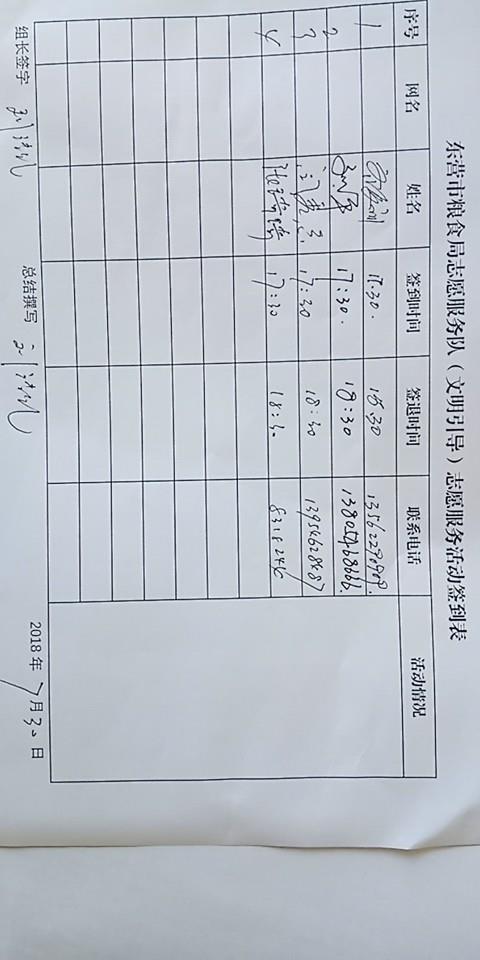 东营市粮食局志愿服务队（文明引导）志愿服务活动签到表
序号 网名 姓名 签到时间 签退时间 联系电话 活动情况
1 17.30. 18.30 13562290909.
2 17:30. 18:30 13805468666.
3 17:30 18:30 13954628487
4 17:30 18:30 8318246
组长签字 总结撰写 2018年7月30日